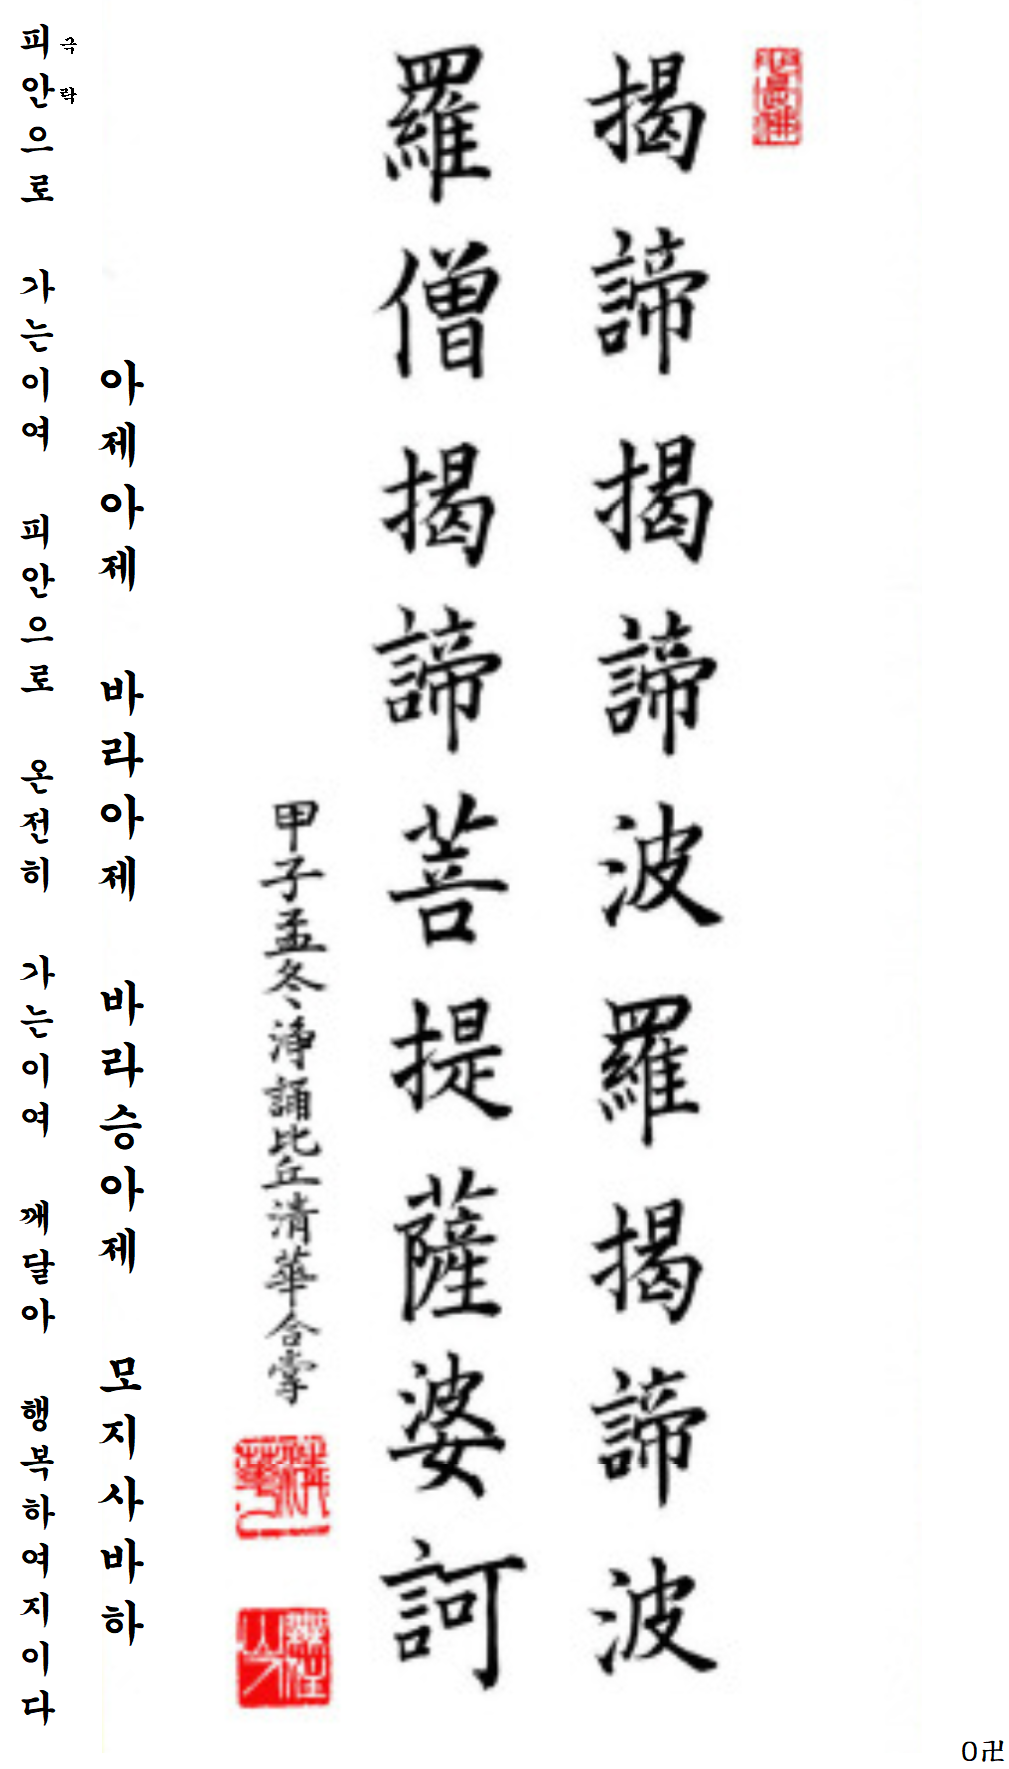 揭諦揭諦波羅揭諦波
羅僧揭諦菩提薩婆訶
甲子孟冬淨誦比丘清華合掌
아제아제 바라아제 바라승아제 모지사바하
극락
피안으로 가는이여 피안으로 온전히 가는이여 깨달아 행복하여지이다
O卍